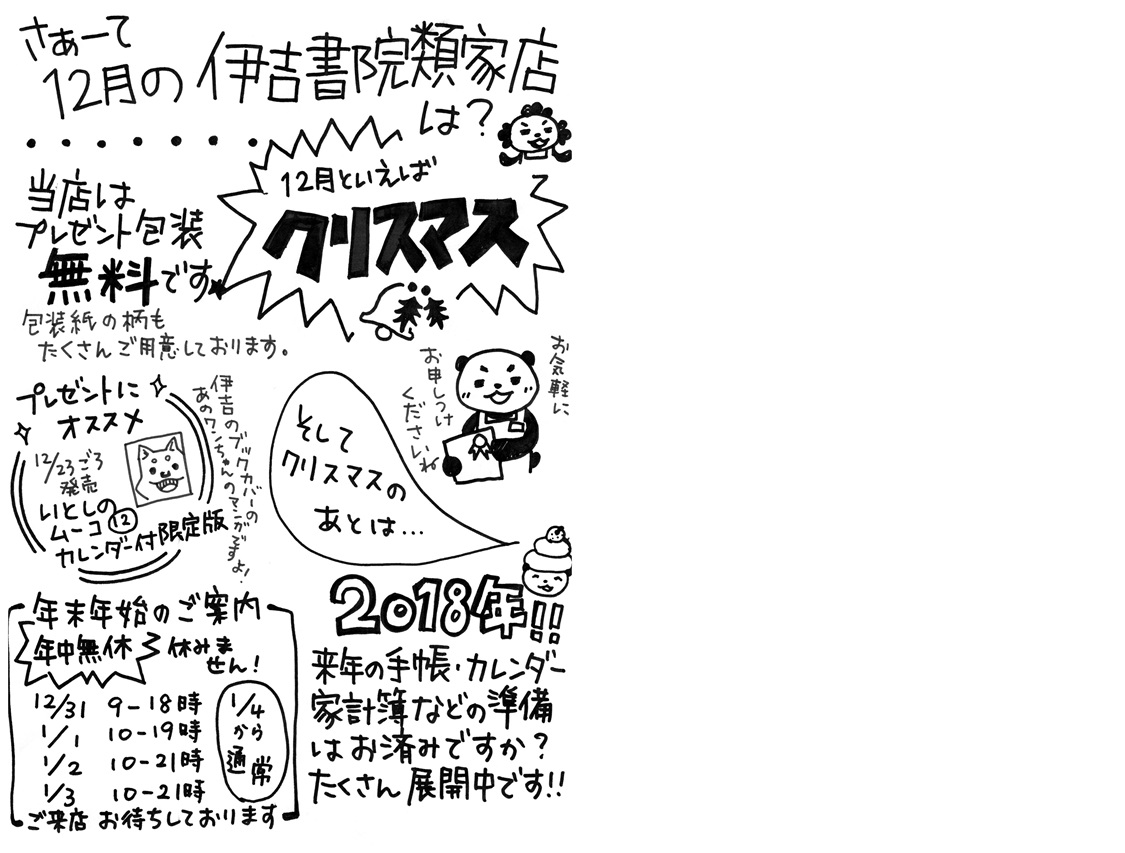 さぁーて
12月の 伊吉書院類家店
は?
・・・・・・・・
12月といえば
クリスマス
当店は
プレゼント包装
無料です
包装紙の柄も
たくさんご用意しております。
お気軽に
お申しつけ
くださいね
プレゼントに
オススメ
12/23ごろ
発売
いとしの
ムーコ⑫
カレンダー付限定版
伊吉のブックカバーの
あのワンちゃんのマンガですよ!
そして
クリスマスの
あとは…
2018年!!
来年の手帳・カレンダー
家計簿などの準備
はお済みですか?
たくさん展開中です!!
年末年始のご案内
年中無休 休みま
せん!
12/31 9-18時
1/1 10-19時
1/2 10-21時
1/3 10-21時
1/4
から
通常
ご来店 お待ちしております